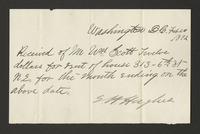 Washington D.C. Feb 10
1912
Received of Mr Wm Scott Twelve
dollars for rent of house 313-6th St
N.E. for the month ending on the
above date.
E H Hughes